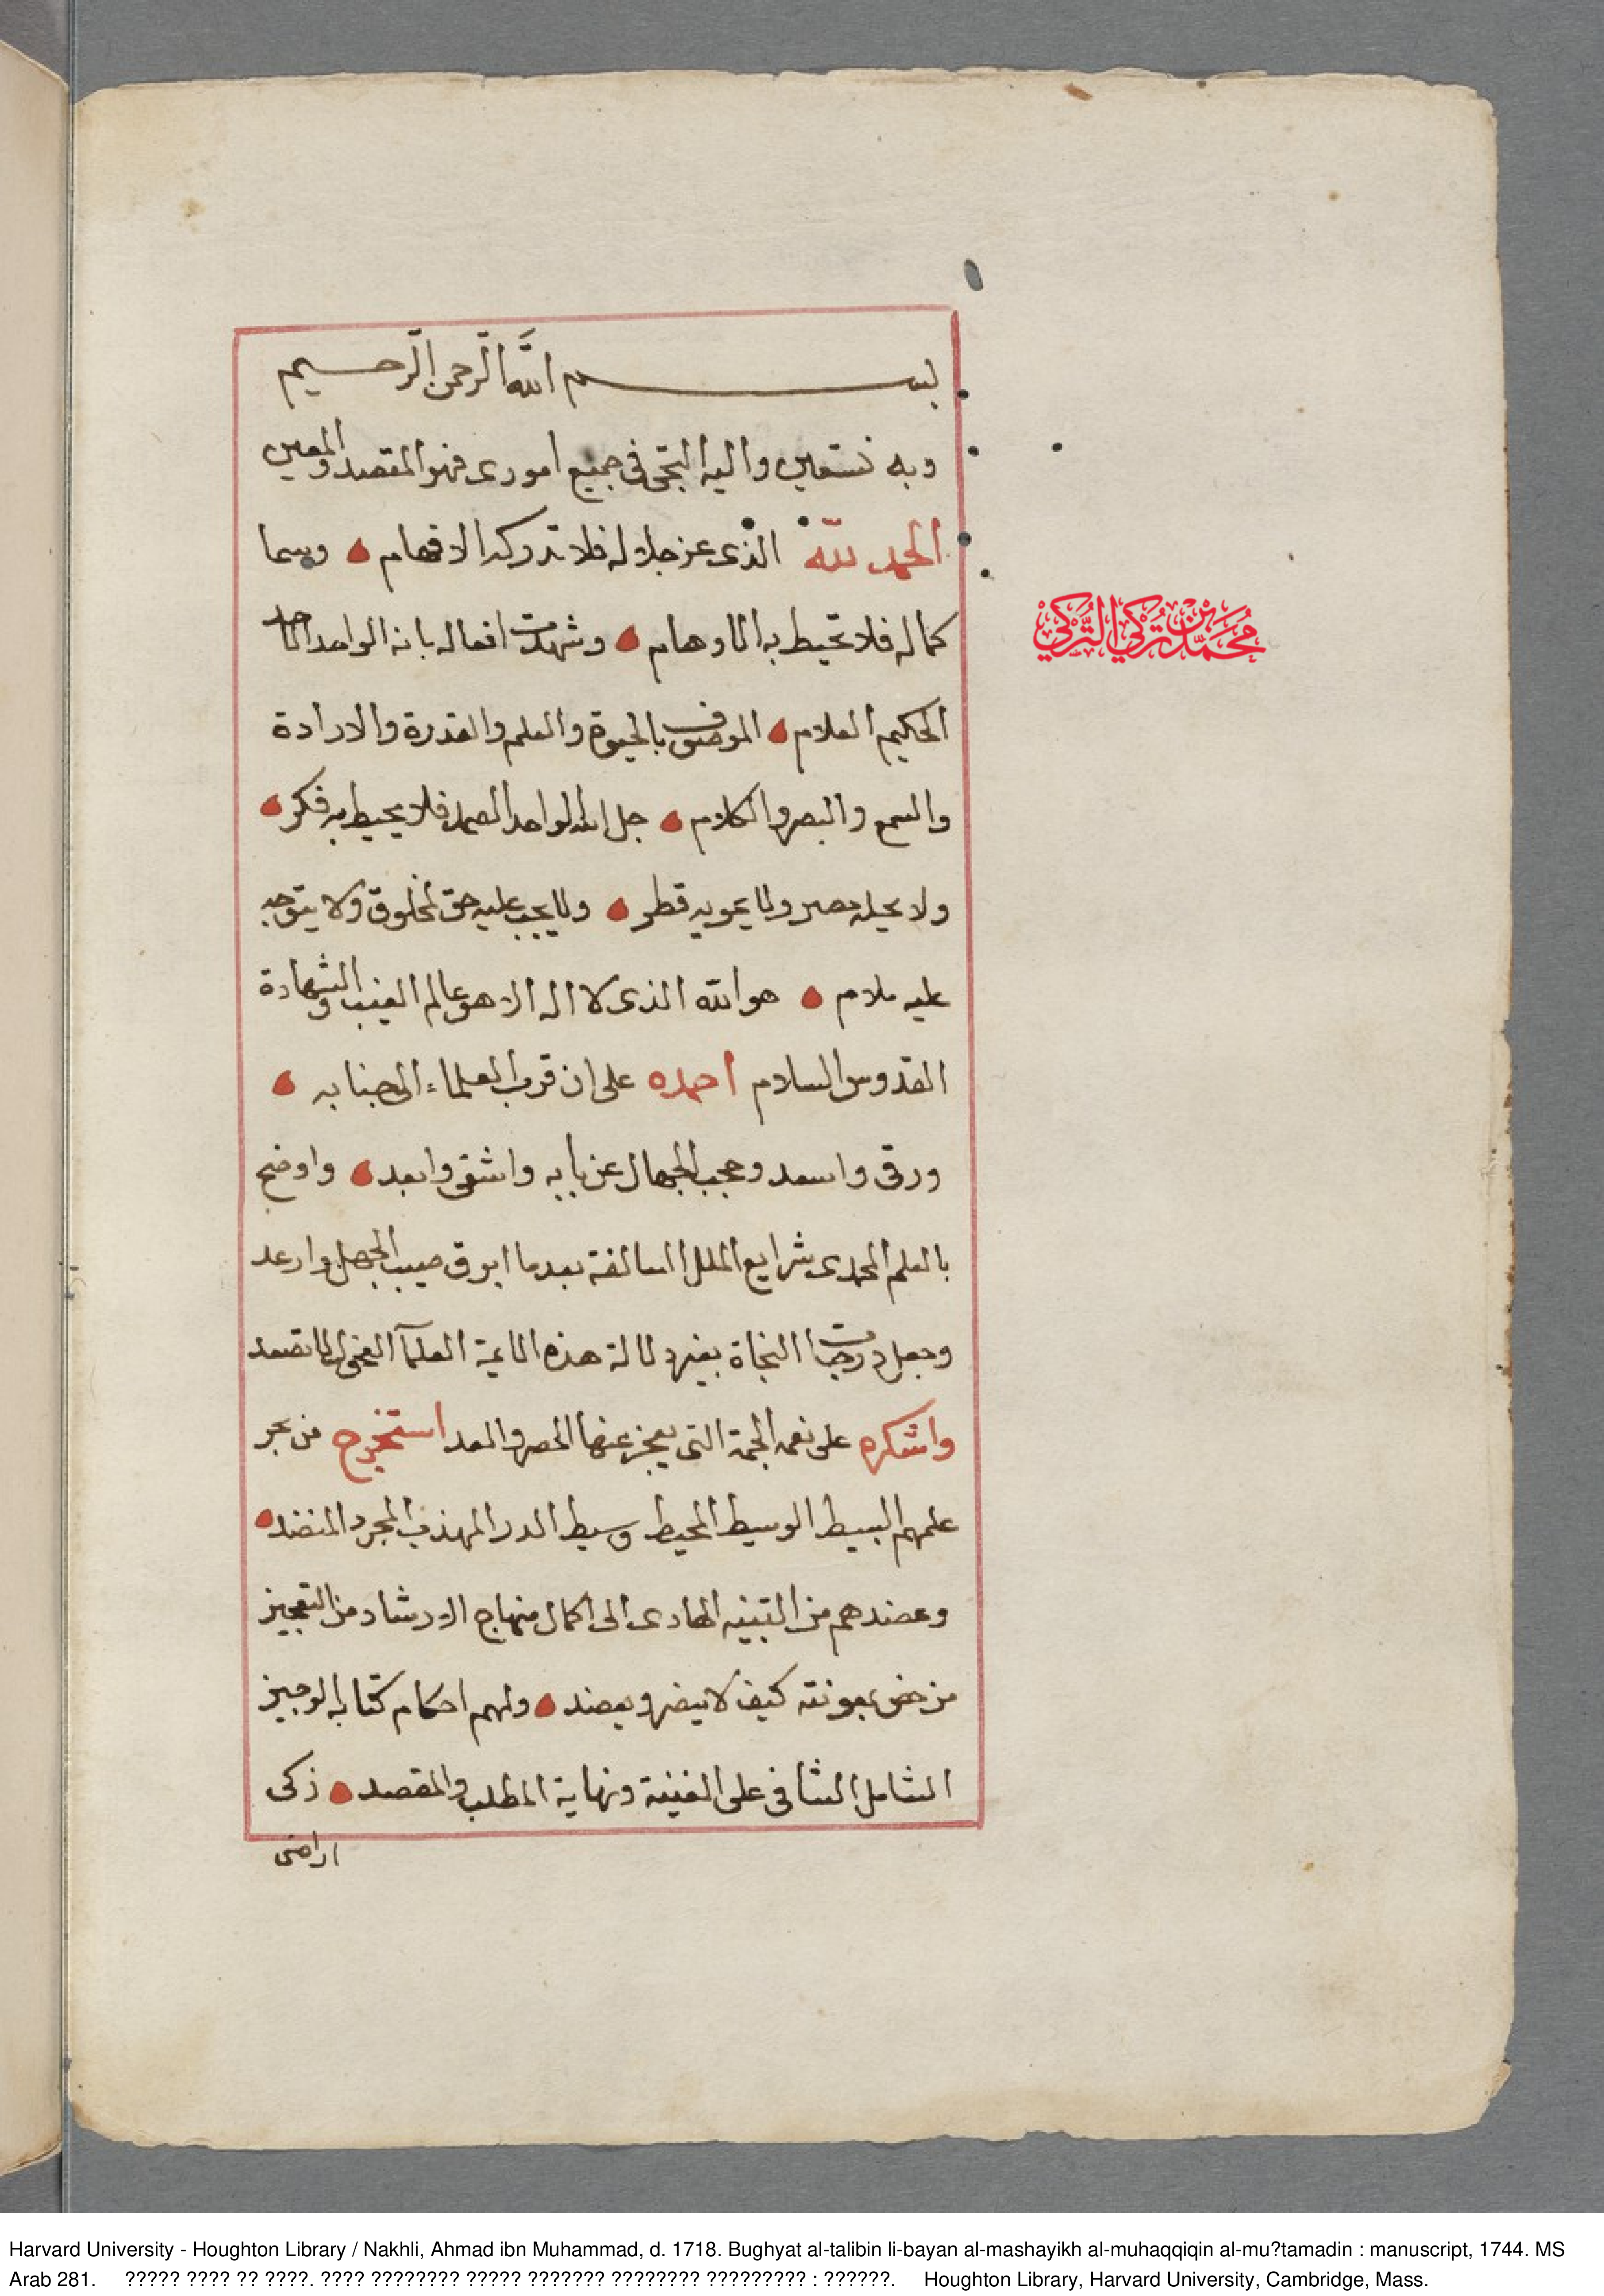 بسم الله الرحمن الرحيم
وبه نستعين واليه التجى فى جميع امورى فهو المقصد والمعين
الحمد لله الذى عز جلاله فلا تدركه الافهام وسما
كماله فلا تحيط به الاوهام وشهدت افعاله بانه الواحد الماجد
الحكيم العلام الموصوف بالحيوة والعلم والقدرة والارادة
والسمع والبصر والكلام جل الله الواحد الصمد فلا يحيط به فكر
ولا يحيله حصر ولا يحويه قطر ولا يجب عليه حق لمخلوق ولا يتوجه
عليه ملام هو الله الذى لا اله الا هو عالم الغيب والشهادة
القدوس السلام احمده على ان قرب العلماء الى جنابه
ورقى واسعد وحجب الجهال عن بابه واشقى وابعد واوضح
بالعلم المحمدى شرايع الملل السالفة بعدما ابرق صيب الجهل وارعد
وجعل درجات النجاة بغير دلالة هذه الايمة العلمآ لا تصعد
واشكره على نعمه الجمة التى يعجز عنها الحصر والعد استخرج من بحر
علمهم البسيط الوسيط المحيط وسيط الدر المهذب المجرد المنضد
وعضدهم من التنبيه الهادى الى اكمال منهاج الارشاد من التعجيز
من خص بمعونته كيف لا ينصر ويعضد ولهم احكام كتابه الوجيز
الشامل الشافى على الغنية ونهاية المطلب والمقصد زكى
اراضى
محمد بن تركي التركي
Harvard University - Houghton Library / Nakhli, Ahmad ibn Muhammad, d. 1718. Bughyat al-talibin li-bayan al-mashayikh al-muhaqqiqin al-mu?tamadin : manuscript, 1744. MS
Arab 281. ????? ???? ?? ????. ???? ???????? ????? ??????? ???????? ????????? : ??????. Houghton Library, Harvard University, Cambridge, Mass.